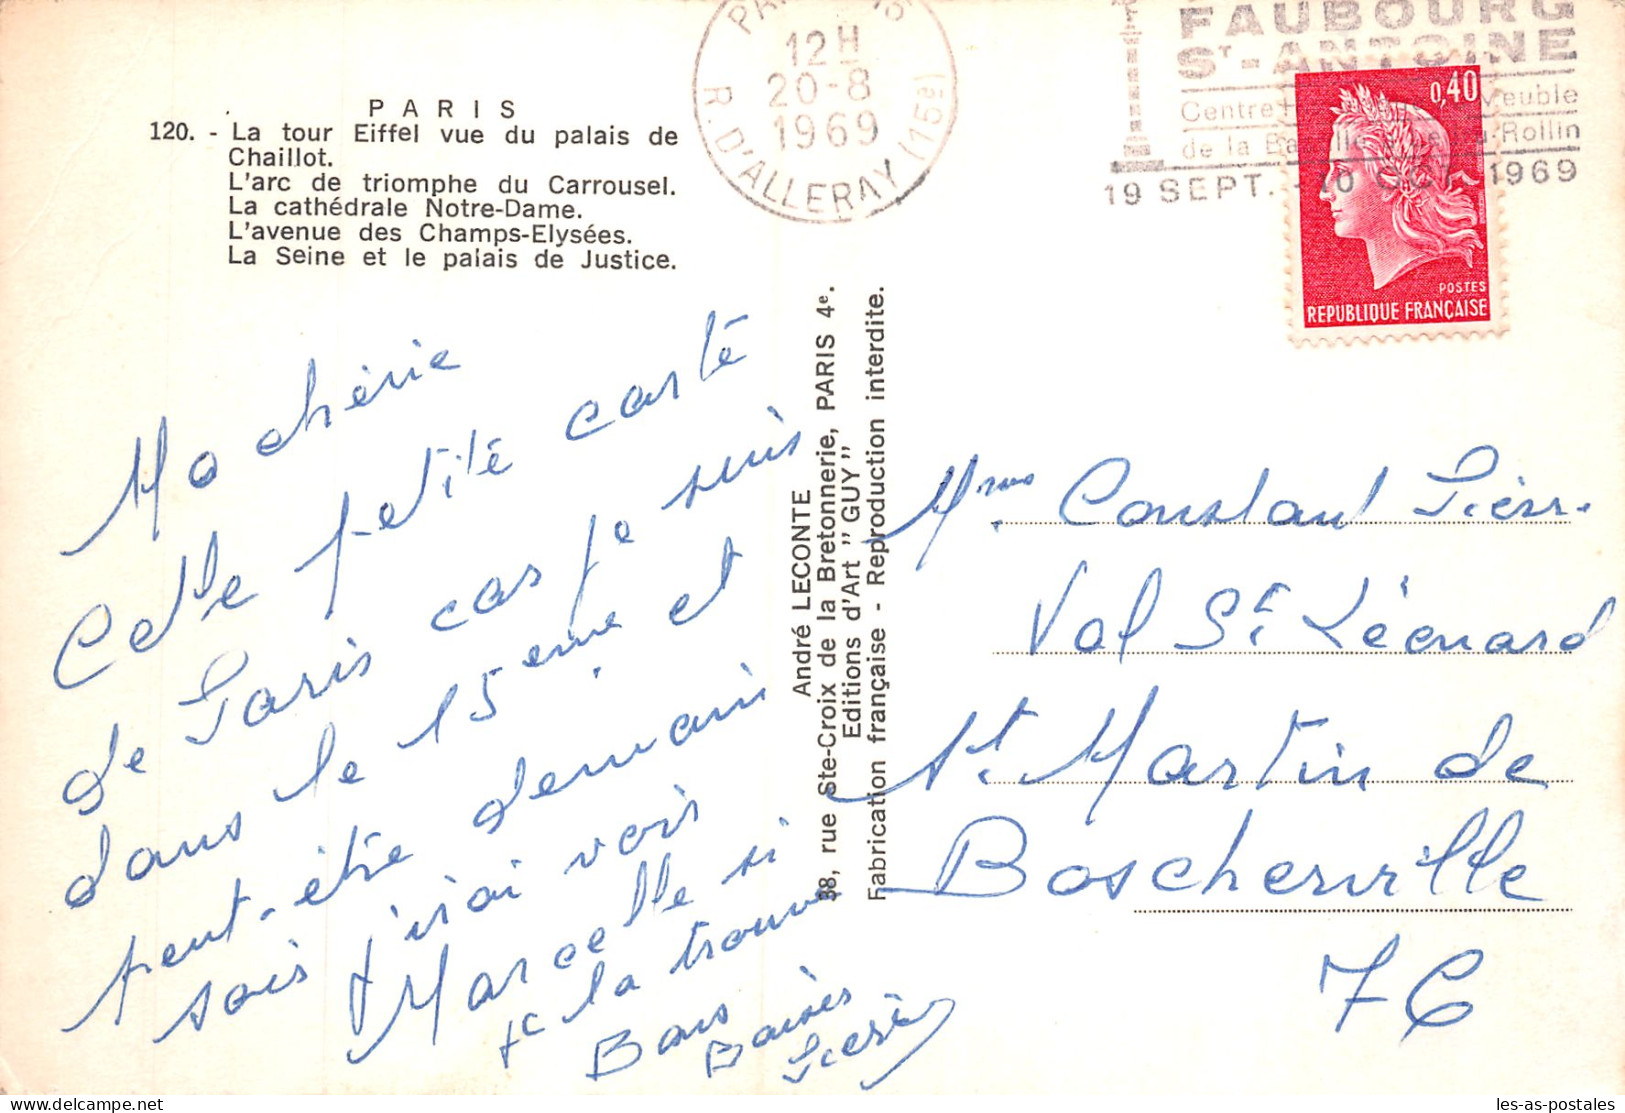 PARIS
120. - La tour Eiffel vue du palais de
Chaillot.
L'arc de triomphe du Carrousel.
La cathédrale Notre-Dame.
L'avenue des Champs-Elysées.
La Seine et le palais de Justice.
12H
20-8
1969
R. D'ALLERAY (15e)
FAUBOURG
ST-ANTOINE
Centre Meuble
de la Rollin
19 SEPT. - 1969
0,40
POSTES
REPUBLIQUE FRANÇAISE
André LECONTE
38, rue Ste-Croix de la Bretonnerie, PARIS 4e.
Editions d'Art "GUY"
Fabrication française - Reproduction interdite.
Ma chérie
Cette petite carte
de Paris car je suis
dans le 15 eme et
peut-être demain
sois j'irai voir
Marcelle si
je la trouve
Bons
Baisers
Pierre
Mme Constant Pierr.
Val St Léonard
St. Martin de
Boscherville
76
les-as-postales